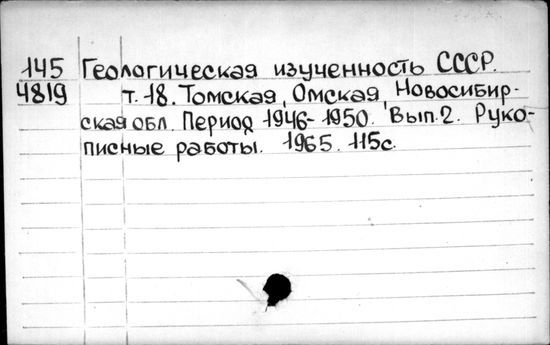 145 Геологическая изученность СССР.
4819 т. 18. Томская, Омская, Новосибир-
ская обл. Период 1946-1950. Вып. 2. Руко-
писные работы. 1965. 115с.